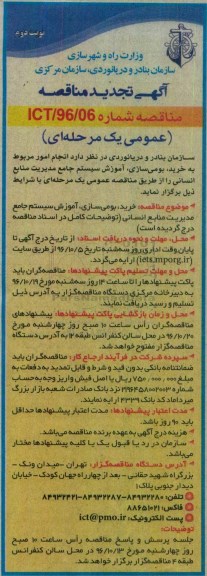 نوبت دوم
وزارت راه و شهرسازی
سازمان بنادر و دریانوردی، سازمان مرکزی
آگهی تجدید مناقصه
مناقصه شماره ICT/96/06
(عمومی یک مرحله‌ای)
سازمان بنادر و دریانوردی در نظر دارد انجام امور مربوط
به خرید، بومی‌سازی، آموزش سیستم جامع مدیریت منابع
انسانی را از طریق مناقصه عمومی یک مرحله‌ای با شرایط
ذیل برگزار نماید.
موضوع مناقصه: خرید، بومی‌سازی، آموزش سیستم جامع
مدیریت منابع انسانی (توضیحات کامل در اسناد مناقصه
درج گردیده است)
محل، مهلت و نحوه دریافت اسناد: از تاریخ درج آگهی تا
پایان وقت اداری روز سه‌شنبه تاریخ 96/10/5 از طریق سایت
(iets.mporg.ir) ارایه می‌گردد.
محل و مهلت تسلیم پاکت پیشنهادها: مناقصه‌گران باید
پاکت پیشنهادها را تا ساعت 14 روز سه‌شنبه مورخ 96/10/19
به دبیرخانه مرکزی دستگاه مناقصه‌گزار به آدرس ذیل
تسلیم و رسید دریافت نمایند.
محل و زمان بازگشایی پاکت پیشنهادها: پیشنهادهای
مناقصه‌گران رأس ساعت 10 صبح روز چهارشنبه مورخ
96/10/20 در محل سالن کنفرانس طبقه 4 به آدرس دستگاه
مناقصه‌گزار مفتوح خواهد شد.
سپرده شرکت در فرآیند ارجاع کار: مناقصه‌گران باید
ضمانتنامه بانکی بدون قید و شرط و قابل تمدید به دفعات به
مبلغ 750،000،000 ریال یا اصل فیش واریز وجه به حساب
نزد بانک صادرات شعبه بازار بزرگ
میرداماد کد بانک 4339 ارایه نمایند.
مدت اعتبار پیشنهادها: مدت اعتبار پیشنهادها حداقل
باید 90 روز باشد.
هزینه درج آگهی به عهده برنده مناقصه می‌باشد.
سازمان در رد یا قبول یک یا کلیه پیشنهادها مختار
می‌باشد.
آدرس دستگاه مناقصه‌گزار: تهران - میدان ونک -
بزرگراه شهید حقانی - بعد از چهارراه جهان کودک - خیابان
دیدار جنوبی پلاک 1
تلفن: 84932280-84932287-84932421
فاکس: 88651021
پست الکترونیک: ict@pmo.ir
توضیحات:
جلسه پرسش و پاسخ مناقصه رأس ساعت 10 صبح
روز چهارشنبه مورخ 96/10/13 در محل سالن کنفرانس
طبقه 4 مناقصه‌گزار برگزار خواهد شد.